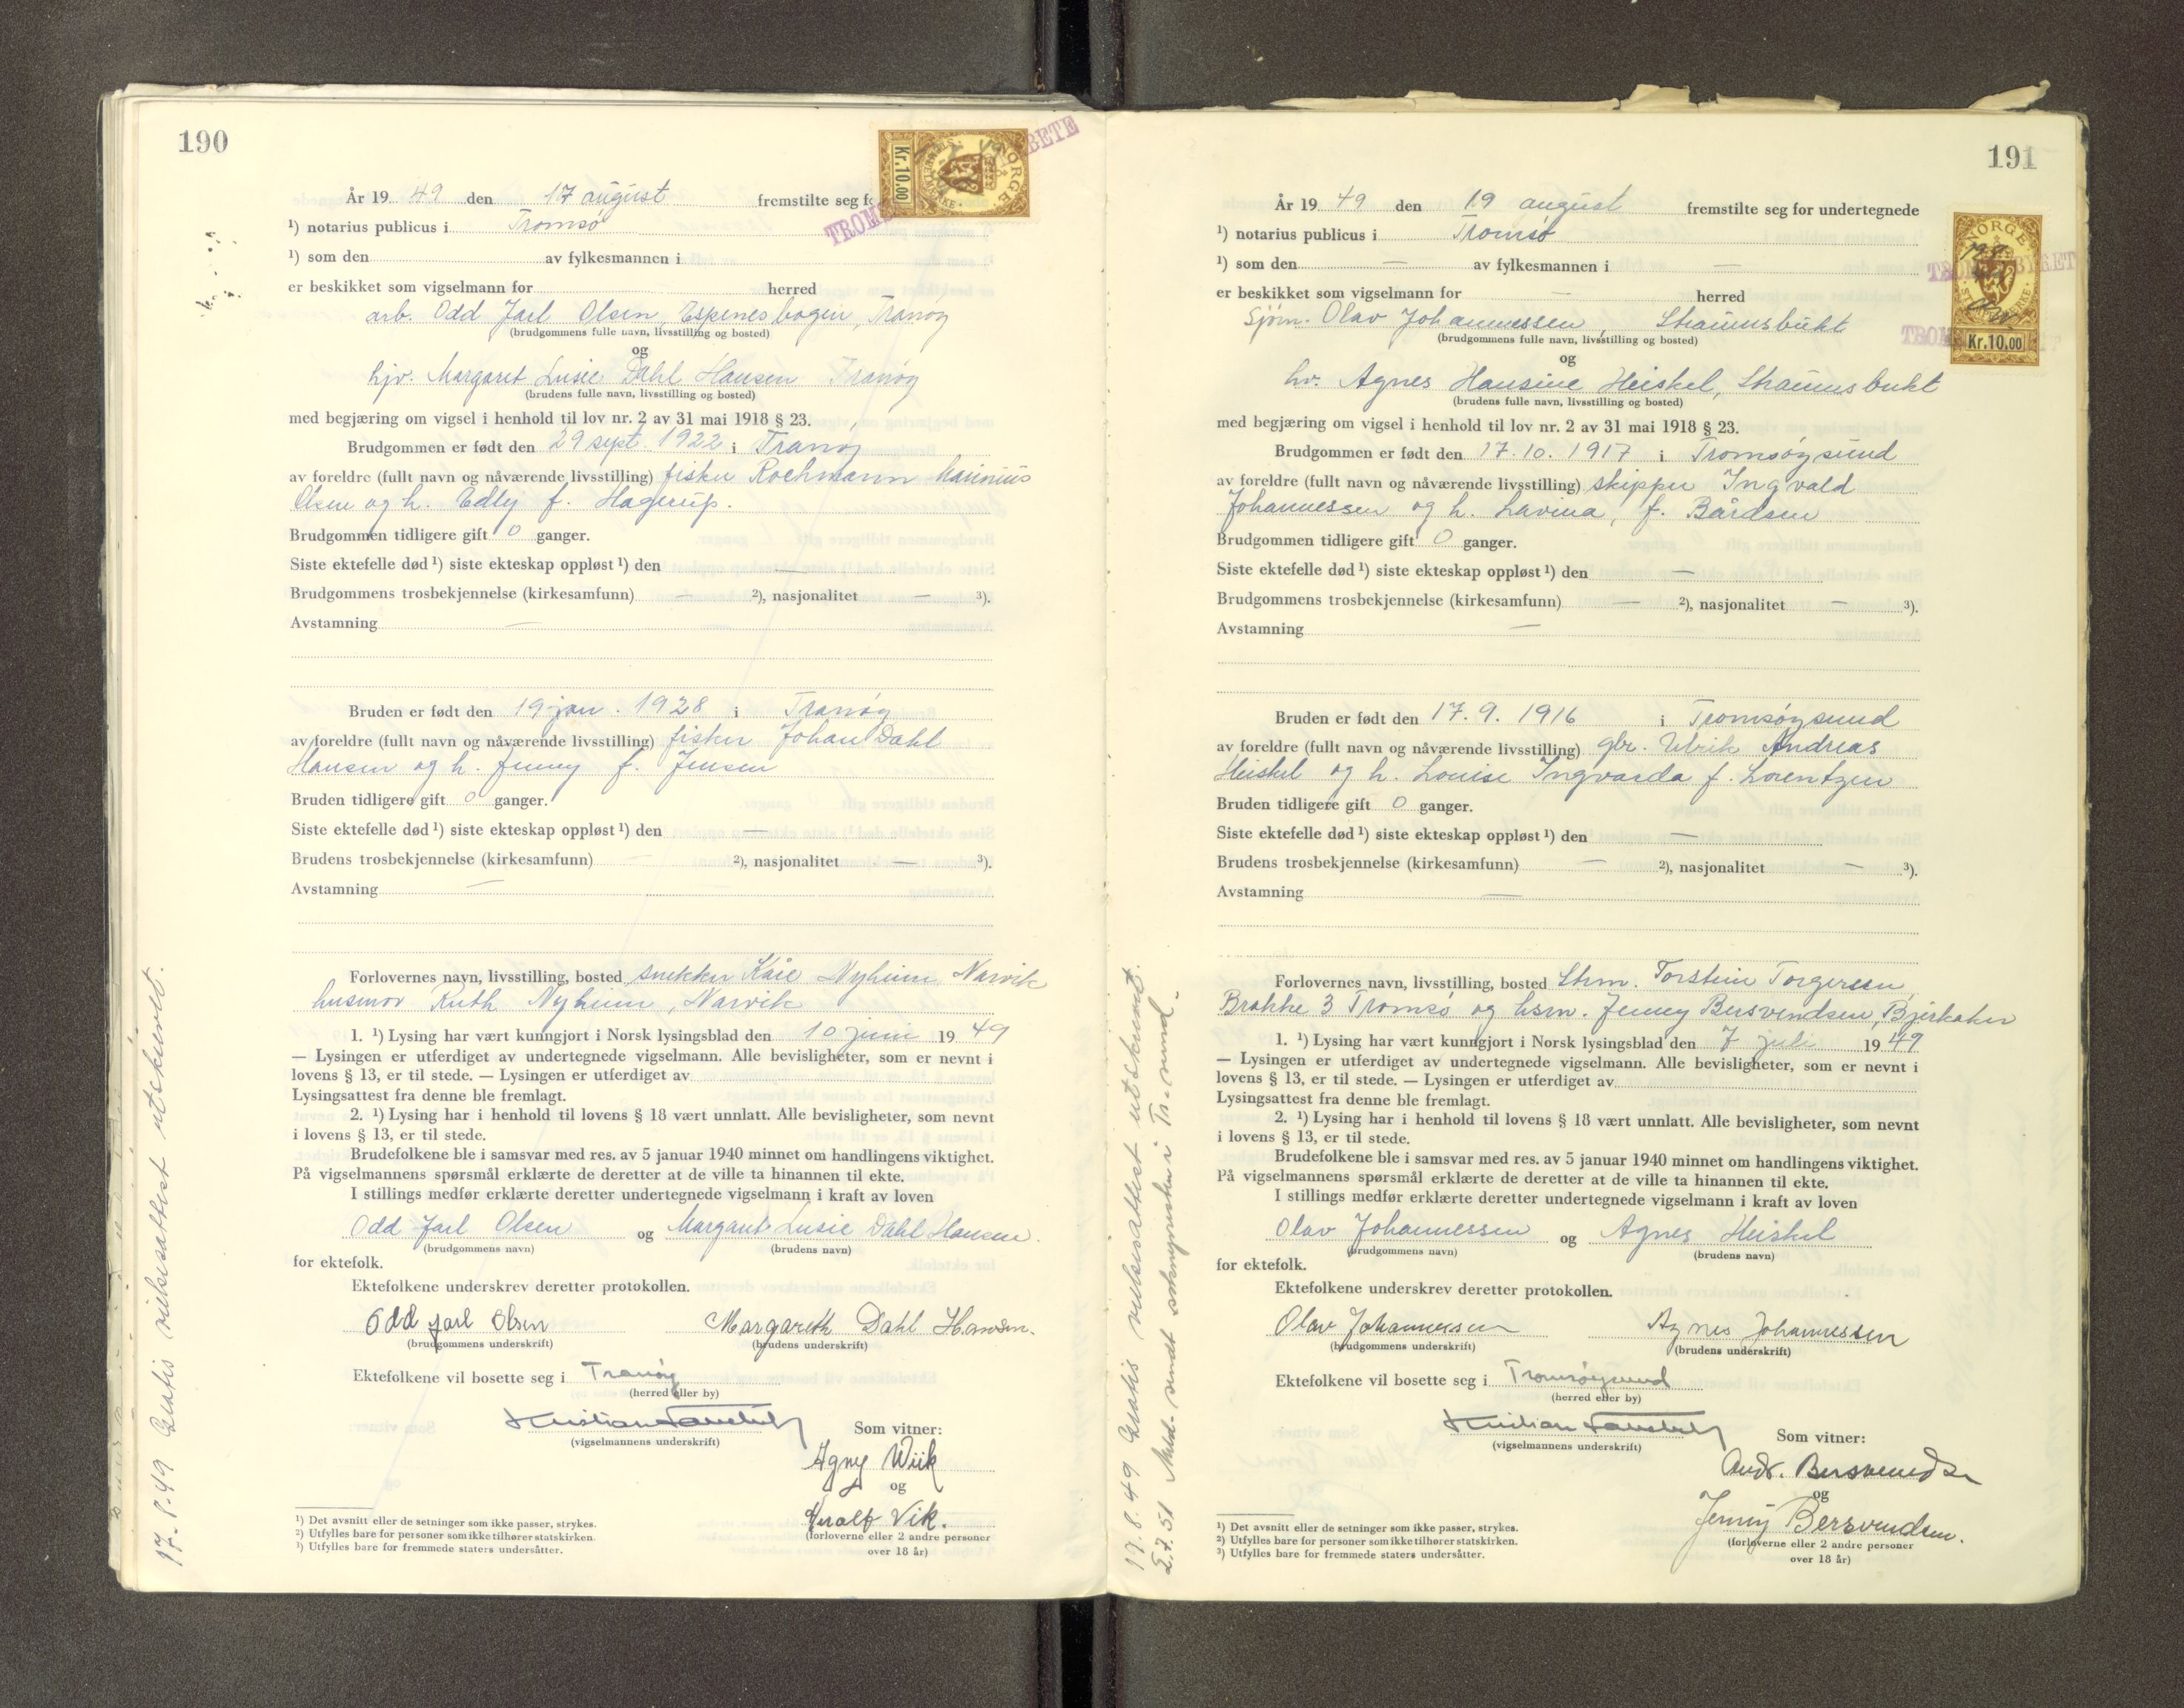 190
NORGE
STEMPELMERKE
Kr.10.00
År 19 49 den 17 august fremstilte seg fo
¹) notarius publicus i Tromsø
¹) som den av fylkesmannen i
er beskikket som vigselmann for — herred
arb. Odd Jarl Olsen, Espenesbogen, Tranøy
(brudgommens fulle navn, livsstilling og bosted)
og
hjv. Margaret Lusie Dahl Hansen Tranøy
(brudens fulle navn, livsstilling og bosted)
med begjæring om vigsel i henhold til lov nr. 2 av 31 mai 1918 § 23.
Brudgommen er født den 29 sept. 1922 i Tranøy
av foreldre (fullt navn og nåværende livsstilling) fisker Rochmann
Olsen og h. Edly f. Hagerup.
Brudgommen tidligere gift 0 ganger.
Siste ektefelle død ¹) siste ekteskap oppløst ¹) den —
Brudgommens trosbekjennelse (kirkesamfunn) — ²), nasjonalitet — ³).
Avstamning —
Bruden er født den 19 jan. 1928 i Tranøy
av foreldre (fullt navn og nåværende livsstilling) fisker Johan Dahl
Hansen og h. Jenny f. Jensen
Bruden tidligere gift 0 ganger.
Siste ektefelle død ¹) siste ekteskap oppløst ¹) den —
Brudens trosbekjennelse (kirkesamfunn) — ²), nasjonalitet — ³).
Avstamning —
Forlovernes navn, livsstilling, bosted snekker Kåre Nyheim Narvik
husmor Ruth Nyheim, Narvik
1. ¹) Lysing har vært kunngjort i Norsk lysingsblad den 10 juni 19 49
— Lysingen er utferdiget av undertegnede vigselmann. Alle bevisligheter, som er nevnt i
lovens § 13, er til stede. — Lysingen er utferdiget av
Lysingsattest fra denne ble fremlagt.
2. ¹) Lysing har i henhold til lovens § 18 vært unnlatt. Alle bevisligheter, som nevnt
i lovens § 13, er til stede.
Brudefolkene ble i samsvar med res. av 5 januar 1940 minnet om handlingens viktighet.
På vigselmannens spørsmål erklærte de deretter at de ville ta hinannen til ekte.
I stillings medfør erklærte deretter undertegnede vigselmann i kraft av loven
Odd Jarl Olsen og Margaret Lusie Dahl Hansen.
(brudgommens navn) (brudens navn)
for ektefolk.
Ektefolkene underskrev deretter protokollen.
Odd Jarl Olsen Margareth Dahl Hansen.
(brudgommens underskrift) (brudens underskrift)
Ektefolkene vil bosette seg i Tranøy
(herred eller by)
Kristian
(vigselmannens underskrift)
Som vitner:
Agny Wiik
og
Vik.
(forloverne eller 2 andre personer
over 18 år)
¹) Det avsnitt eller de setninger som ikke passer, strykes.
²) Utfylles bare for personer som ikke tilhører statskirken.
³) Utfylles bare for fremmede staters undersåtter.
17.8.49 Gratis vielsesattest utskrevet.
191
NORGE
STEMPELMERKE
Kr.10.00
År 19 49 den 19 august fremstilte seg for undertegnede
¹) notarius publicus i Tromsø
¹) som den — av fylkesmannen i —
er beskikket som vigselmann for — herred
Sjøm. Olav Johannessen, Straumsbukt
(brudgommens fulle navn, livsstilling og bosted)
og
hv. Agnes Hansine Heiskel, Straumsbukt
(brudens fulle navn, livsstilling og bosted)
med begjæring om vigsel i henhold til lov nr. 2 av 31 mai 1918 § 23.
Brudgommen er født den 17.10.1917 i Tromsøysund
av foreldre (fullt navn og nåværende livsstilling) skipper Ingvald
Johannessen og h. Lavina, f. Bårdsen
Brudgommen tidligere gift 0 ganger.
Siste ektefelle død ¹) siste ekteskap oppløst ¹) den —
Brudgommens trosbekjennelse (kirkesamfunn) — ²), nasjonalitet — ³).
Avstamning —
Bruden er født den 17.9.1916 i Tromsøysund
av foreldre (fullt navn og nåværende livsstilling) gbr. Ulrik Andreas
Heiskel og h. Louise Ingvarda f. Lorentzen
Bruden tidligere gift 0 ganger.
Siste ektefelle død ¹) siste ekteskap oppløst ¹) den —
Brudens trosbekjennelse (kirkesamfunn) — ²), nasjonalitet — ³).
Avstamning —
Forlovernes navn, livsstilling, bosted Strm. Torstein Torgersen,
Brakke 3 Tromsø og hsm. Jenny Bersvendsen, Bjerkaker
1. ¹) Lysing har vært kunngjort i Norsk lysingsblad den 7 juli 19 49
— Lysingen er utferdiget av undertegnede vigselmann. Alle bevisligheter, som er nevnt i
lovens § 13, er til stede. — Lysingen er utferdiget av
Lysingsattest fra denne ble fremlagt.
2. ¹) Lysing har i henhold til lovens § 18 vært unnlatt. Alle bevisligheter, som nevnt
i lovens § 13, er til stede.
Brudefolkene ble i samsvar med res. av 5 januar 1940 minnet om handlingens viktighet.
På vigselmannens spørsmål erklærte de deretter at de ville ta hinannen til ekte.
I stillings medfør erklærte deretter undertegnede vigselmann i kraft av loven
Olav Johannessen og Agnes Heiskel
(brudgommens navn) (brudens navn)
for ektefolk.
Ektefolkene underskrev deretter protokollen.
Olav Johannessen Agnes Johannessen
(brudgommens underskrift) (brudens underskrift)
Ektefolkene vil bosette seg i Tromsøysund
(herred eller by)
Kristian
(vigselmannens underskrift)
Som vitner:
Andr. Bersvendsen
og
Jenny Bersvendsen.
(forloverne eller 2 andre personer
over 18 år)
¹) Det avsnitt eller de setninger som ikke passer, strykes.
²) Utfylles bare for personer som ikke tilhører statskirken.
³) Utfylles bare for fremmede staters undersåtter.
17.8.49 Gratis vielsesattest utskrevet.
2.7.51 Meld. sendt soknepresten i Tr.sund.